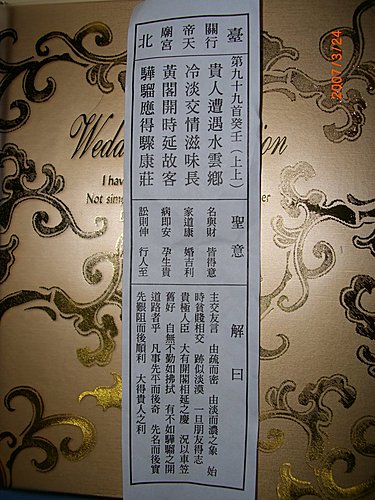 臺
關行
帝天
廟宮
北
第九十九首癸壬（上上）
貴人遭遇水雲鄉
冷淡交情滋味長
黃閣開時延故客
驊騮應得驟康莊
聖意
名與財 皆得意
家道康 婚吉利
病即安 孕生貴
訟則伸 行人至
解曰
主交友言 由疏而密 由淡而濃之象 始
時貧賤相交 跡似淡漠 一旦朋友得志
貴極人臣 大有開閣相延之慶 況以車笠
舊好 自無不勤如拂拭 有不如驊騮之開
道路者乎 凡事先平而後奇 先名而後實
先艱阻而後順利 大得貴人之利
2007/3/24
Wedd
ion
I ha
Not sim